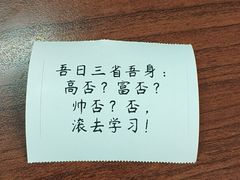 吾日三省吾身：
高否？富否？
帅否？否，
滚去学习！